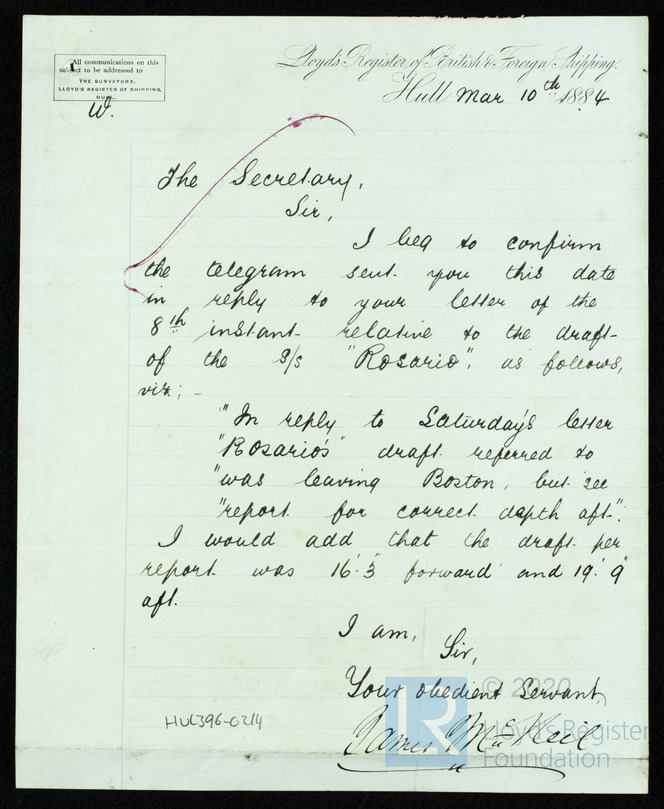 All communications on this
subject to be addressed to
THE SURVEYORS,
LLOYD'S REGISTER OF SHIPPING,
HULL.
W.
Lloyd's Register of British & Foreign Shipping.
Hull Mar 10th 1884
The Secretary,
Sir,
I beg to confirm
the telegram sent you this date
in reply to your letter of the
8th instant relative to the draft
of the s/s "Rosario", as follows,
viz; -
"In reply to Saturday's letter
"Rosario's" draft referred to
"was leaving Boston, but see
"report for correct depth aft".
I would add that the draft per
report was 16'.3" forward and 19'.9"
aft.
I am,
Sir,
Your obedient Servant,
James McNeil
HUL396-0214
LR
© 2020
Lloyd's Register
Foundation